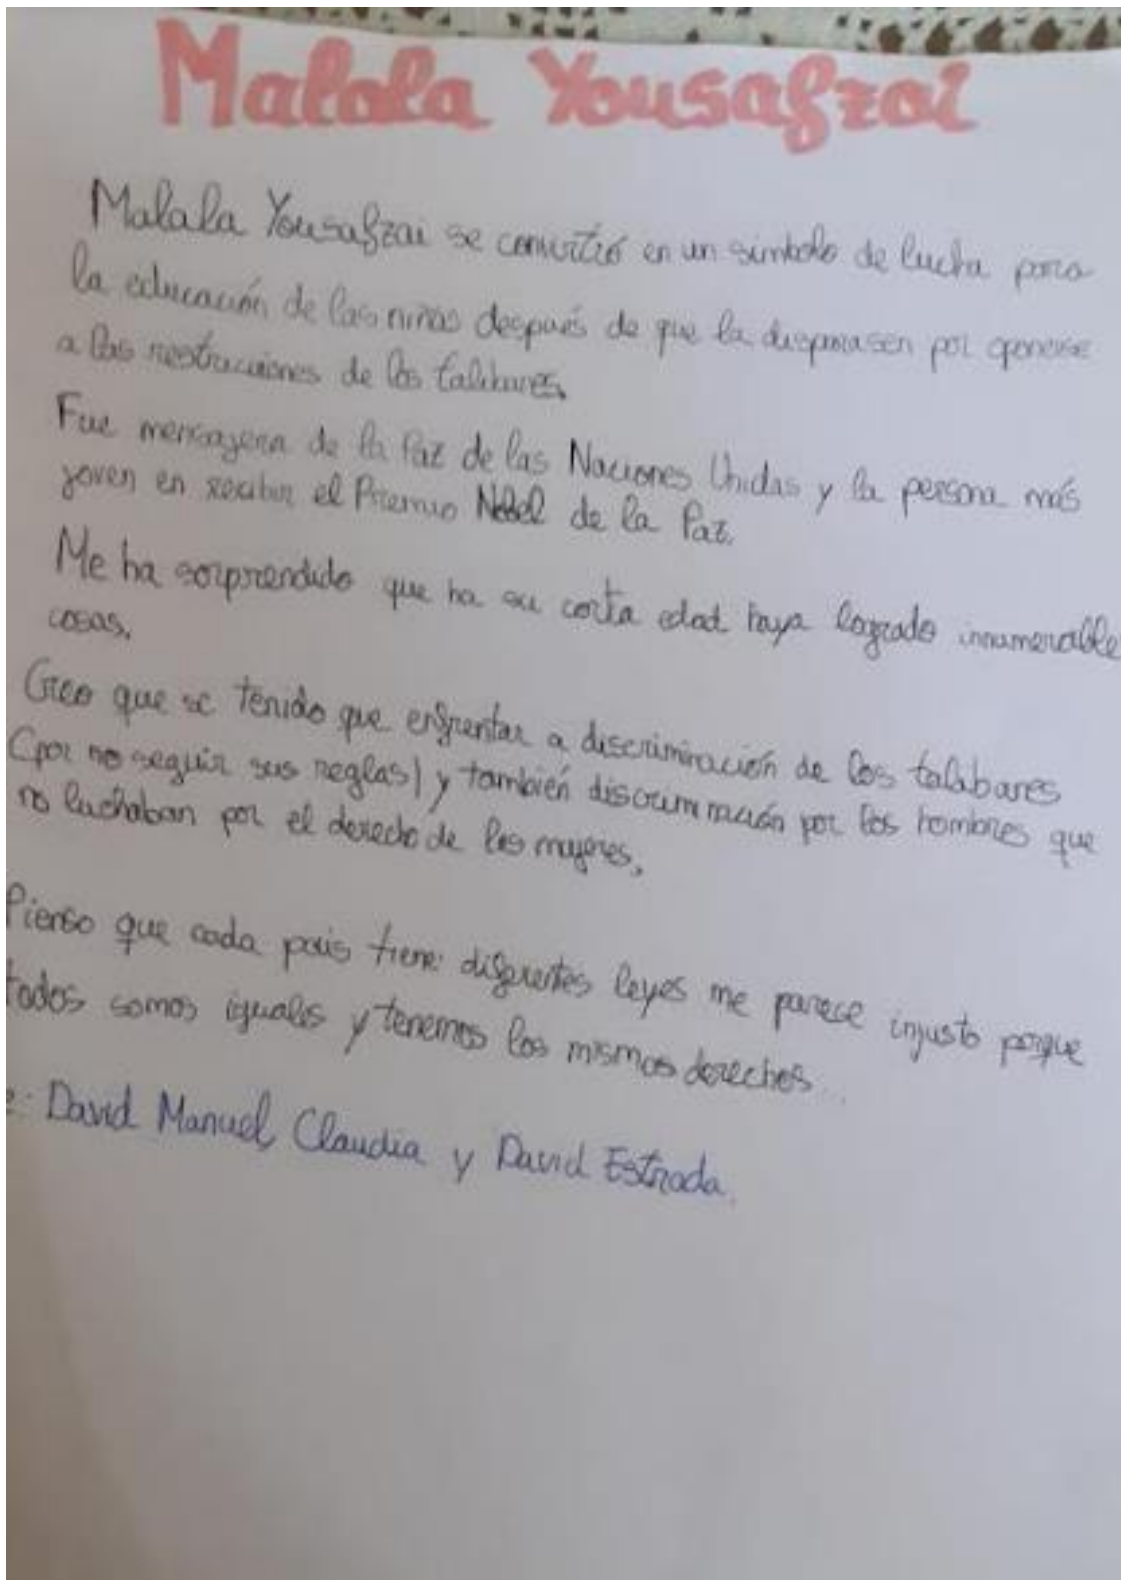 Malala Yousafzai
Malala Yousafzai se convirtió en un simbolo de lucha para
la educación de las niñas después de que la disparasen por oponerse
a las restricciones de los talibanes.
Fue mensajera de la Paz de las Naciones Unidas y la persona más
joven en recibir el Premio Nobel de la Paz.
Me ha sorprendido que ha su corta edad haya logrado innumerable
cosas.
Creo que se tenido que enfrentar a discriminación de los talabanes
(por no seguir sus reglas) y también discriminación por los hombres que
no luchaban por el derecho de las mujeres,
Pienso que cada pais tiene diferentes leyes me parece injusto porque
todos somos iguales y tenemos los mismos derechos...
David Manuel, Claudia y David Estrada.